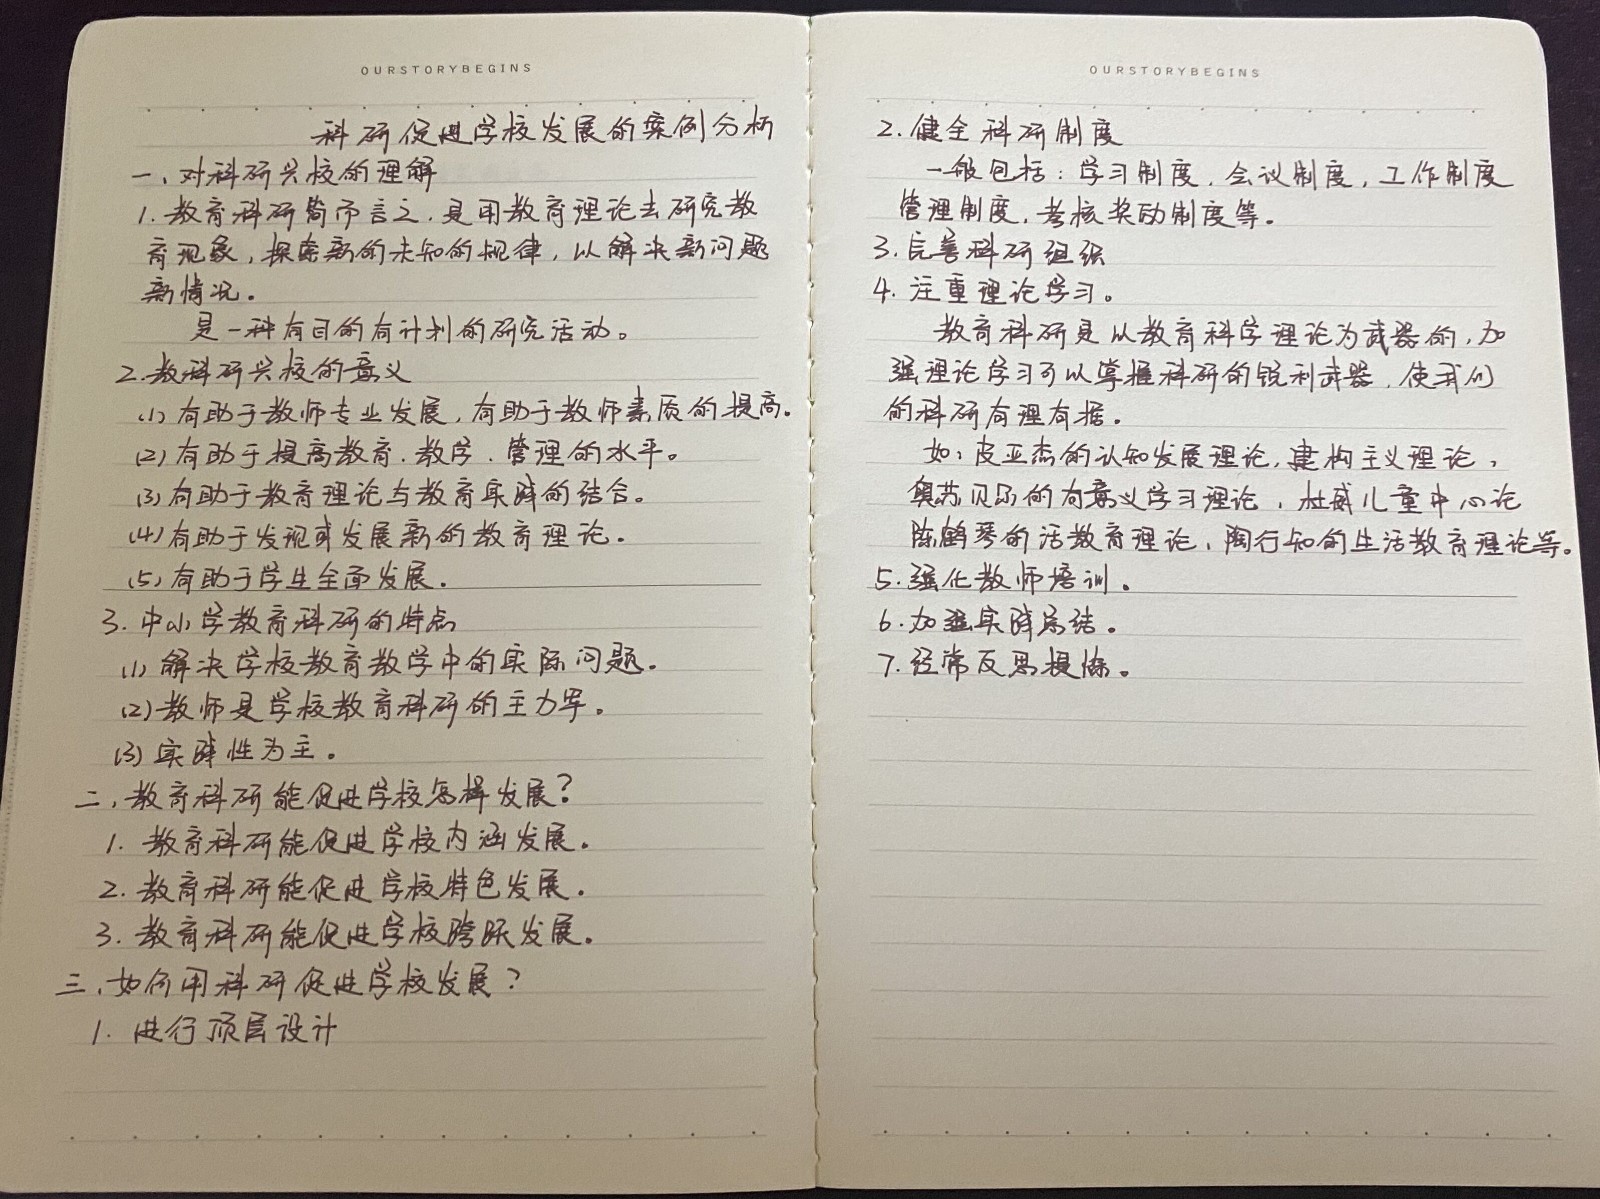 OURSTORYBEGINS
科研促进学校发展的案例分析
一、对科研兴校的理解
1. 教育科研简而言之，是用教育理论去研究教
育现象，探索新的未知的规律，以解决新问题
新情况。
是一种有目的有计划的研究活动。
2. 教科研兴校的意义
(1) 有助于教师专业发展，有助于教师素质的提高。
(2) 有助于提高教育、教学、管理的水平。
(3) 有助于教育理论与教育实践的结合。
(4) 有助于发现或发展新的教育理论。
(5) 有助于学生全面发展。
3. 中小学教育科研的特点
(1) 解决学校教育教学中的实际问题。
(2) 教师是学校教育科研的主力军。
(3) 实践性为主。
二、教育科研能促进学校怎样发展？
1. 教育科研能促进学校内涵发展。
2. 教育科研能促进学校特色发展。
3. 教育科研能促进学校跨跃发展。
三、如何用科研促进学校发展？
1. 进行顶层设计
OURSTORYBEGINS
2. 健全科研制度
一般包括：学习制度，会议制度，工作制度
管理制度，考核奖励制度等。
3. 完善科研组织
4. 注重理论学习。
教育科研是以教育科学理论为武器的，加
强理论学习可以掌握科研的锐利武器，使我们
的科研有理有据。
如：皮亚杰的认知发展理论，建构主义理论，
奥苏贝尔的有意义学习理论，杜威儿童中心论
陈鹤琴的活教育理论，陶行知的生活教育理论等。
5. 强化教师培训。
6. 加强实践总结。
7. 经常反思提炼。